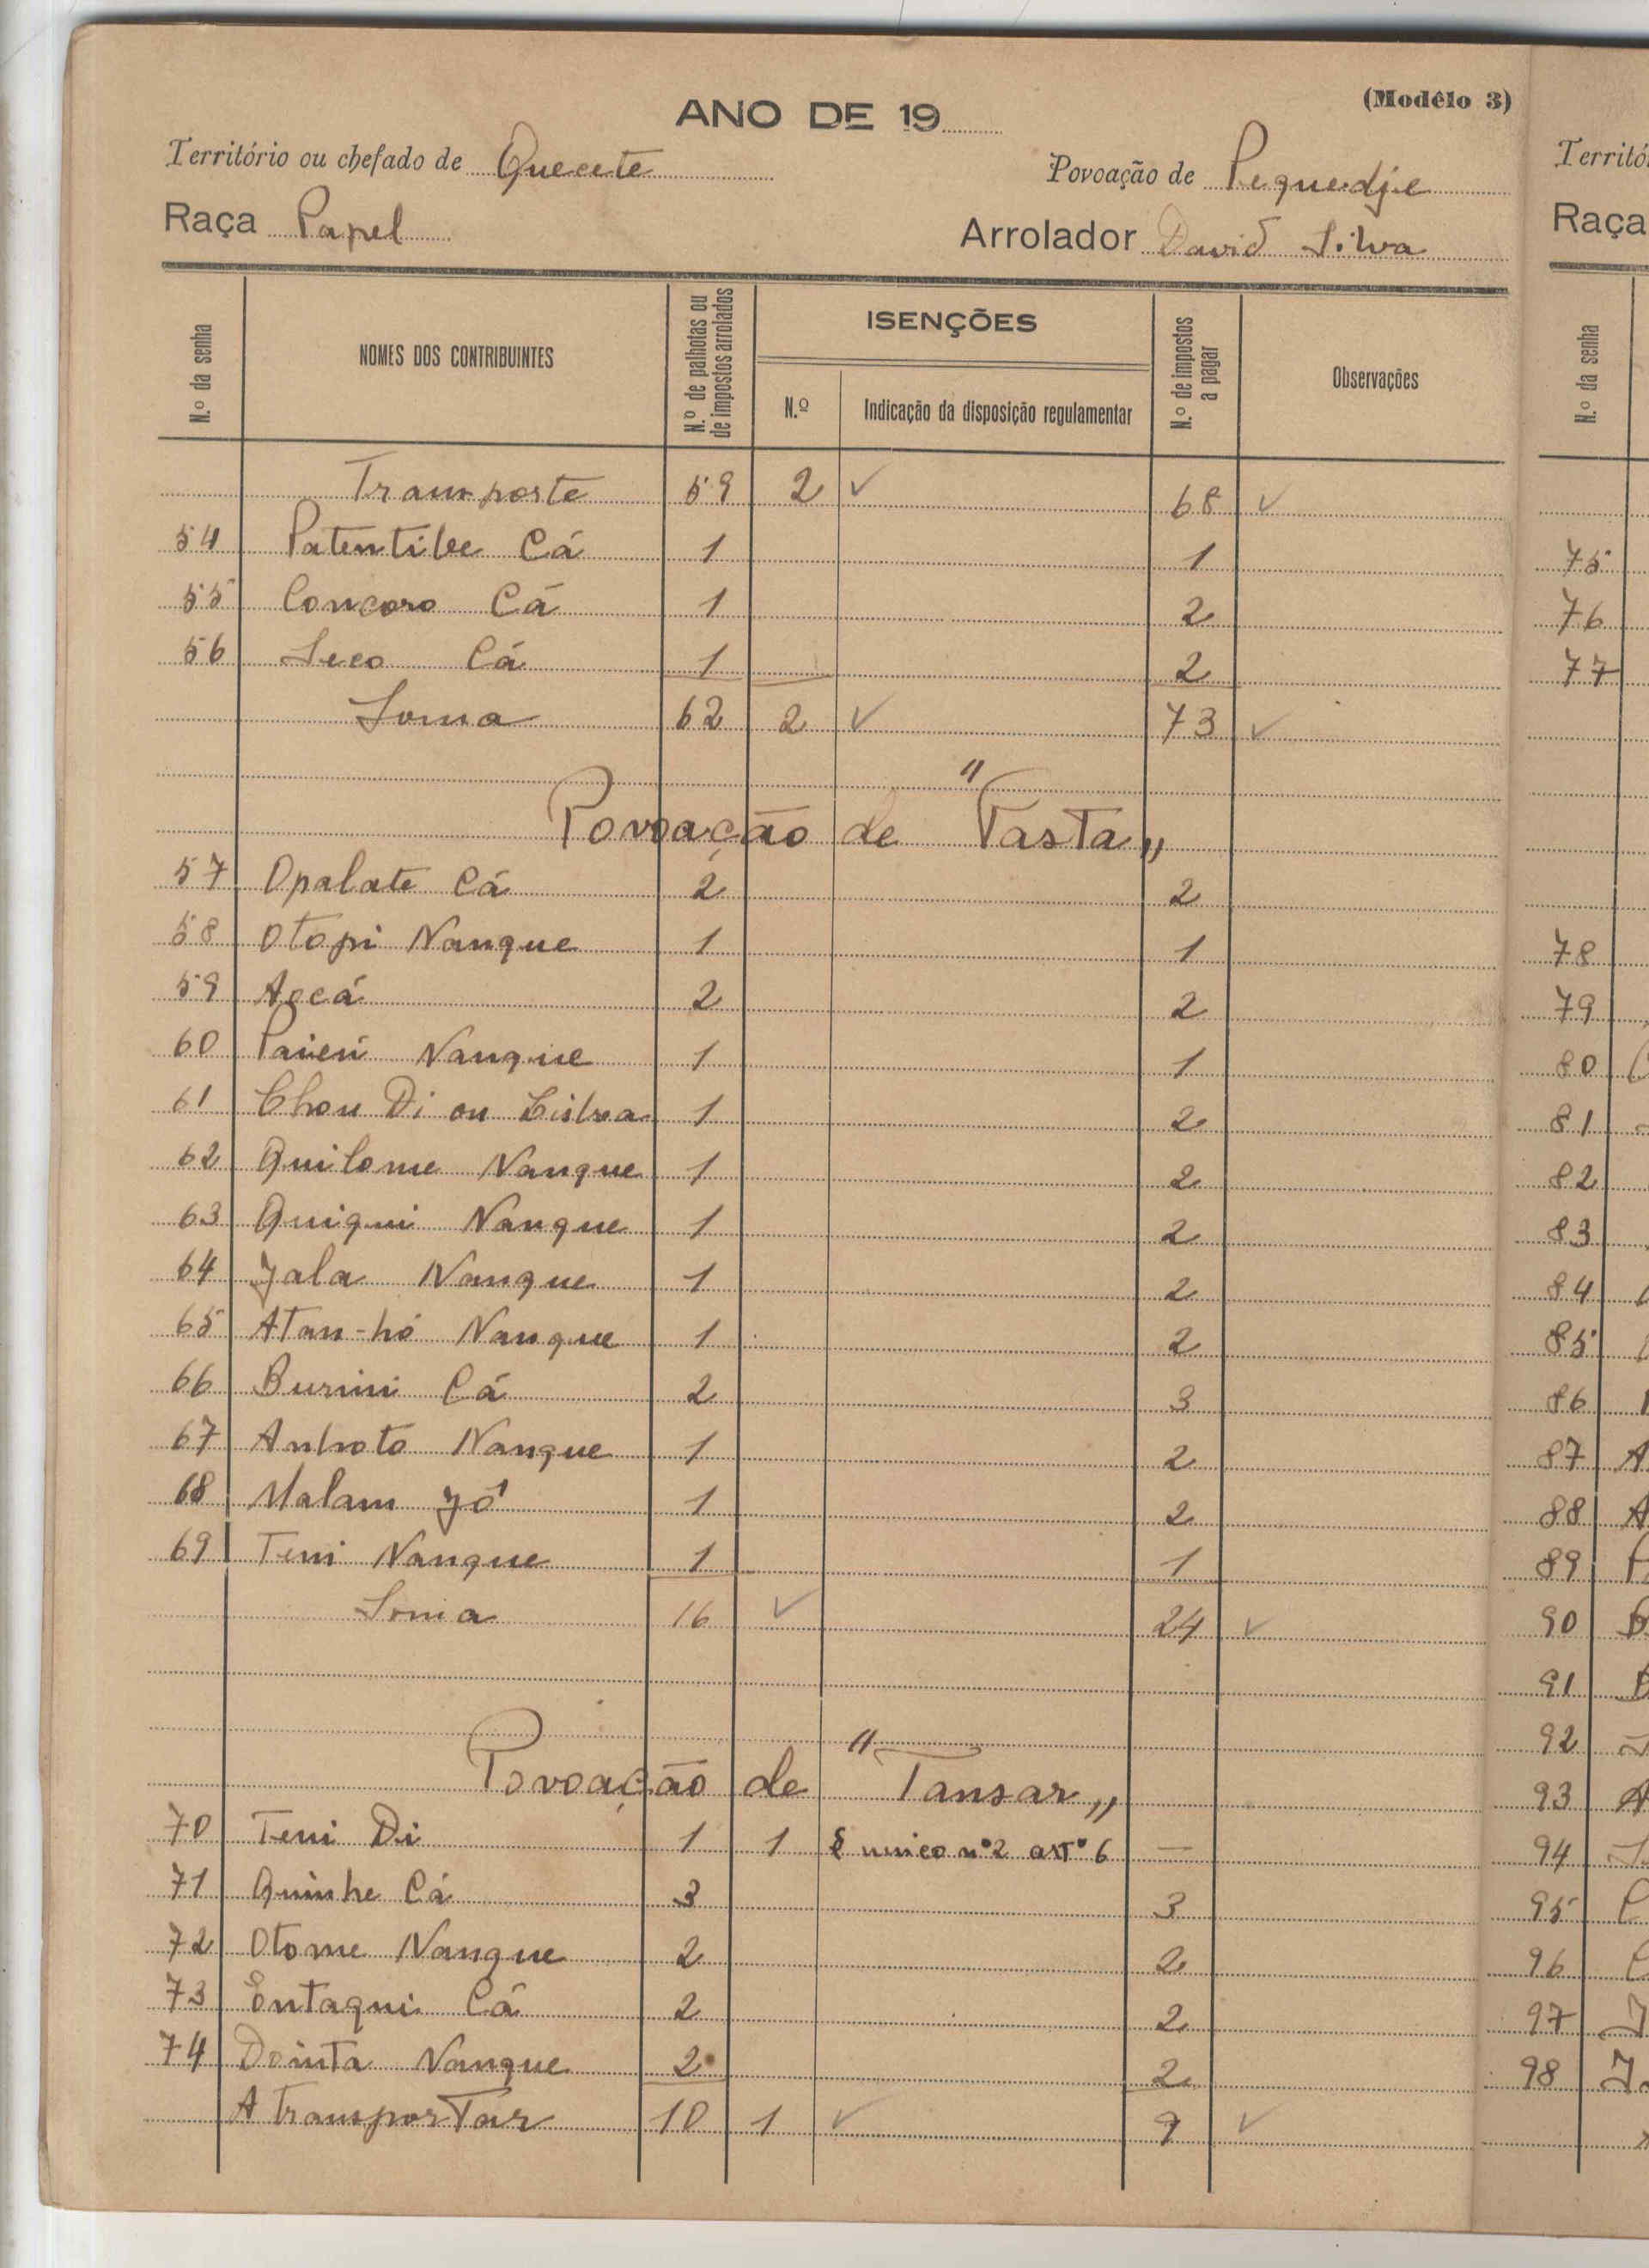 (Modêlo 3)
ANO DE 19
Território ou chefado de Quecete
Povoação de Pequedje
Raça Papel
Arrolador David Silva
N.º da senha
NOMES DOS CONTRIBUINTES
N.º de palhotas ou de impostos arrolados
ISENÇÕES
N.º
Indicação da disposição regulamentar
N.º de impostos a pagar
Observações
Transporte 59 2 ✓ 68 ✓
54 Cá 1 1
55 Concoro Cá 1 2
56 Seco Cá 1 2
Soma 62 2 ✓ 73 ✓
Povoação de "Tasta„
57 Opalate Cá 2 2
58 Otopi Nanque 1 1
59 2 2
60 Nanque 1 1
61 Di ou 1 2
62 Quilome Nanque 1 2
63 Quiqui Nanque 1 2
64 Jala Nanque 1 2
65 Atan-hó Nanque 1 2
66 Burini Cá 2 3
67 Anhoto Nanque 1 2
68 Malam Jó 1 2
69 Teni Nanque 1 1
Soma 16 ✓ 24 ✓
Povoação de "Tansar„
70 Teni Di 1 1 § unico nº 2 artº 6 —
71 Quinhe Cá 3 3
72 Otome Nanque 2 2
73 Entaqui Cá 2 2
74 Dointa Nanque 2 2
A Transportar 10 1 ✓ 9 ✓
Territó
Raça
N.º da senha
75
76
77
78
79
80
81
82
83
84
85
86
87 A
88 A
89
90
91
92
93 A
94
95
96
97
98